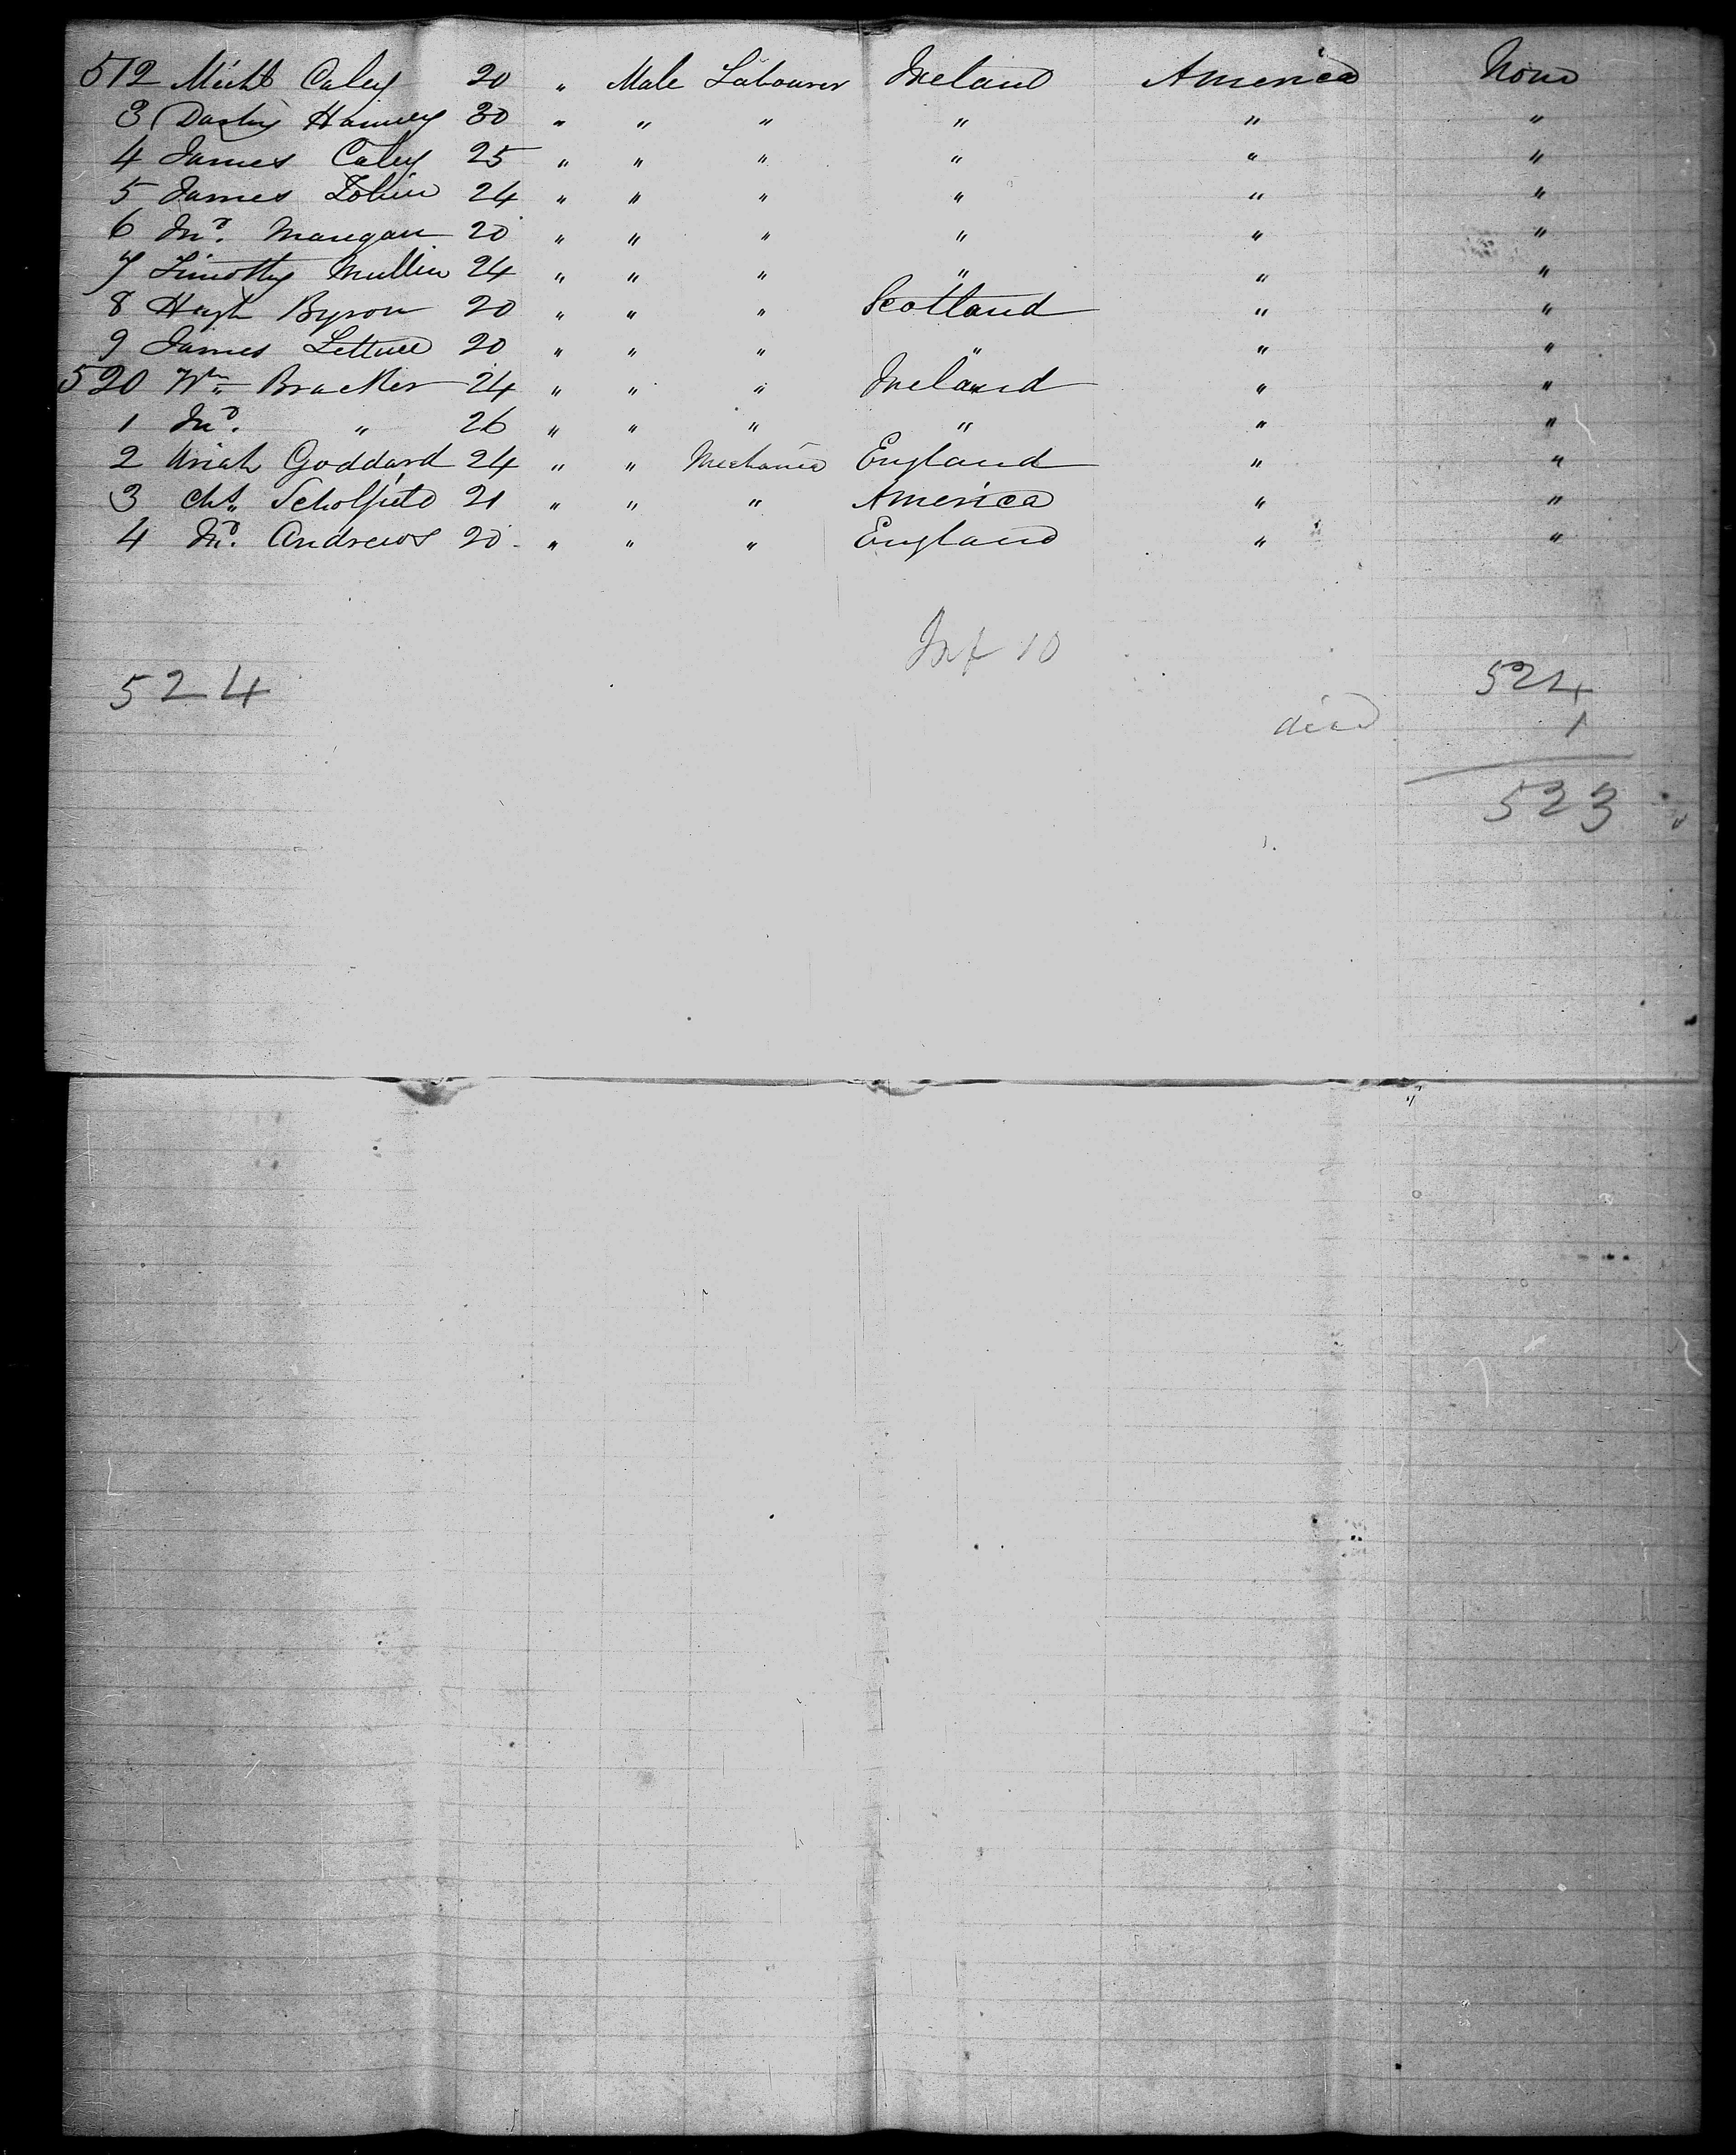 512 Michl Caley 20 " Male Labourer Ireland America None
3 Darby Harvey 30 " " " " " "
4 James Caley 25 " " " " " "
5 James Tobin 24 " " " " " "
6 Jno. Mangan 20 " " " " " "
7 Timothy Mullin 24 " " " " " "
8 Hugh Byron 20 " " " Scotland " "
9 James 20 " " " " " "
520 Wm Bracken 24 " " " Ireland " "
1 Jno. " 26 " " " " " "
2 Uriah Goddard 24 " " Mechanic England " "
3 Chs. Scholfield 21 " " " America " "
4 Jno. Andrews 20 " " " England " "
Inf 10
524 524
died 1
523